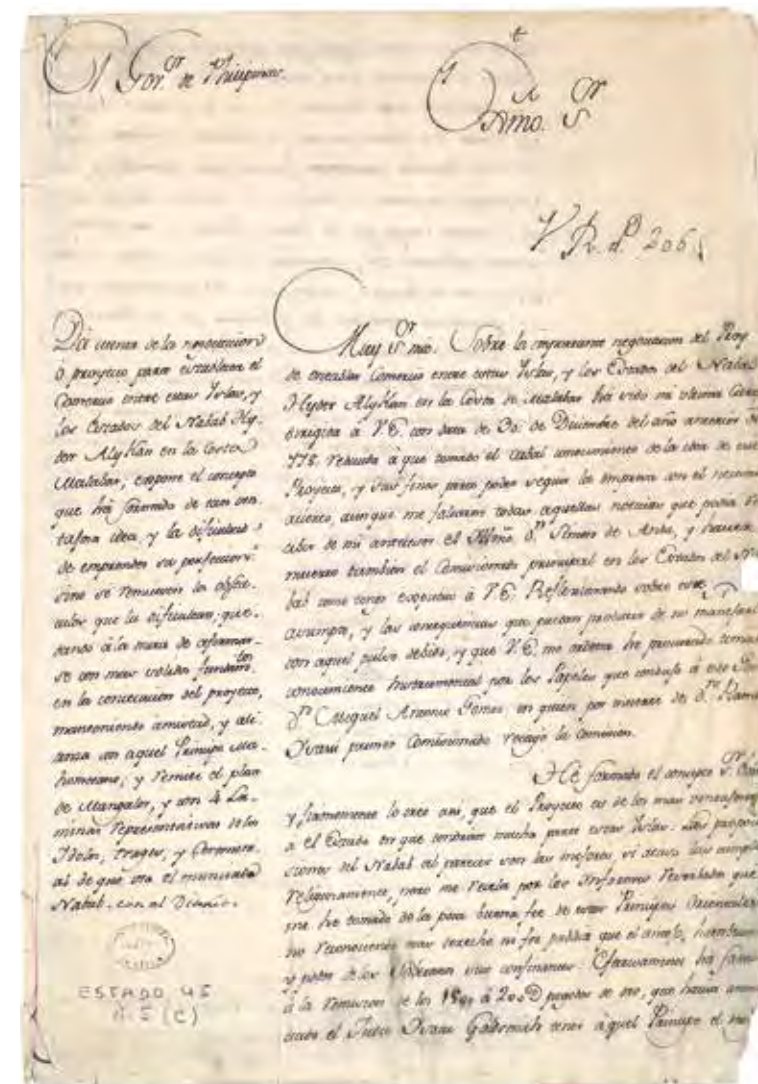 El Gov.or de Philipinas.
Exmo. S.or
V. R. n.º 206
Dá cuenta de la negociacion
ó proyecto para establecer el
Comercio entre estas Yslas, y
los Estados del Nabab Hy-
der Aly Kan en la Costa
Malabar; expone el concepto
que há formado de tan ven-
tajosa idea y la dificultad
de emprender su perfeccion
sino se remueven los obsta-
culos que la dificultan; que-
dando á la mira de afirmar-
se con mas solidos fundam.tos
en la consecucion del proyecto,
manteniendo amistad, y ali-
anza con aquel Principe Ma-
hometano; y remite el plan
de Mangalor, y con 4 La-
minas representativas de los
Idolos, trages, y Ceremoni-
al de que usa el mencionado
Nabab. con el Diario.
ESTADO 45
N. 5 (C)
Muy S.or mio. Sobre la importante negociacion del Proy
de entablar Comercio entre estas Yslas, y los Estados del Nabab
Hyder Aly Kan en la Costa de Malabar há sido mi ultima Carta
dirigida á V.E. con data de 30 de Diciembre del año anterior de
778. reducida á que tomado el cabal conocimiento de la idea de este
Proyecto, y sus fines para poder seguir la empresa con el necesario
acierto, aunque me faltaron todas aquellas noticias que podia
de mi antecesor el D.n Simon de Anda, y haver
muerto tambien el Comisionado principal en los Estados del Na
bab como tengo expuesto á V.E. Reflexionando sobre este
asumpto, y las consequencias que pueden producir de no manejarse
con aquel pulso debido, y que V.E. me ordena he procurado tomar
conocimiento instrumental por los Papeles que condujo á este
D.n Miguel Antonio Gomez en quien por muerte de D.n Ramon
Ysasi primer Comisionado recayó la comision.
Hé formado el concepto S.or
y firmemente lo creo asi, que el Proyecto es de los mas ventajosos
a el Estado en que tendrian mucha parte estas Yslas. Las proposi
ciones del Nabab al parecer son las mejores, si acaso las cumple
religiosamente, pero me recela por los Informes reservados que
he tomado de la poca buena fee de estos Principes Orientales
no reconociendo mas derecho ni fee publica que el
y poder de los Soberanos sus confinantes. Efectivamente há
á la remision de los 150, á 200 pesos de oro, que havia
el Judio Ysaac á aquel Principe el